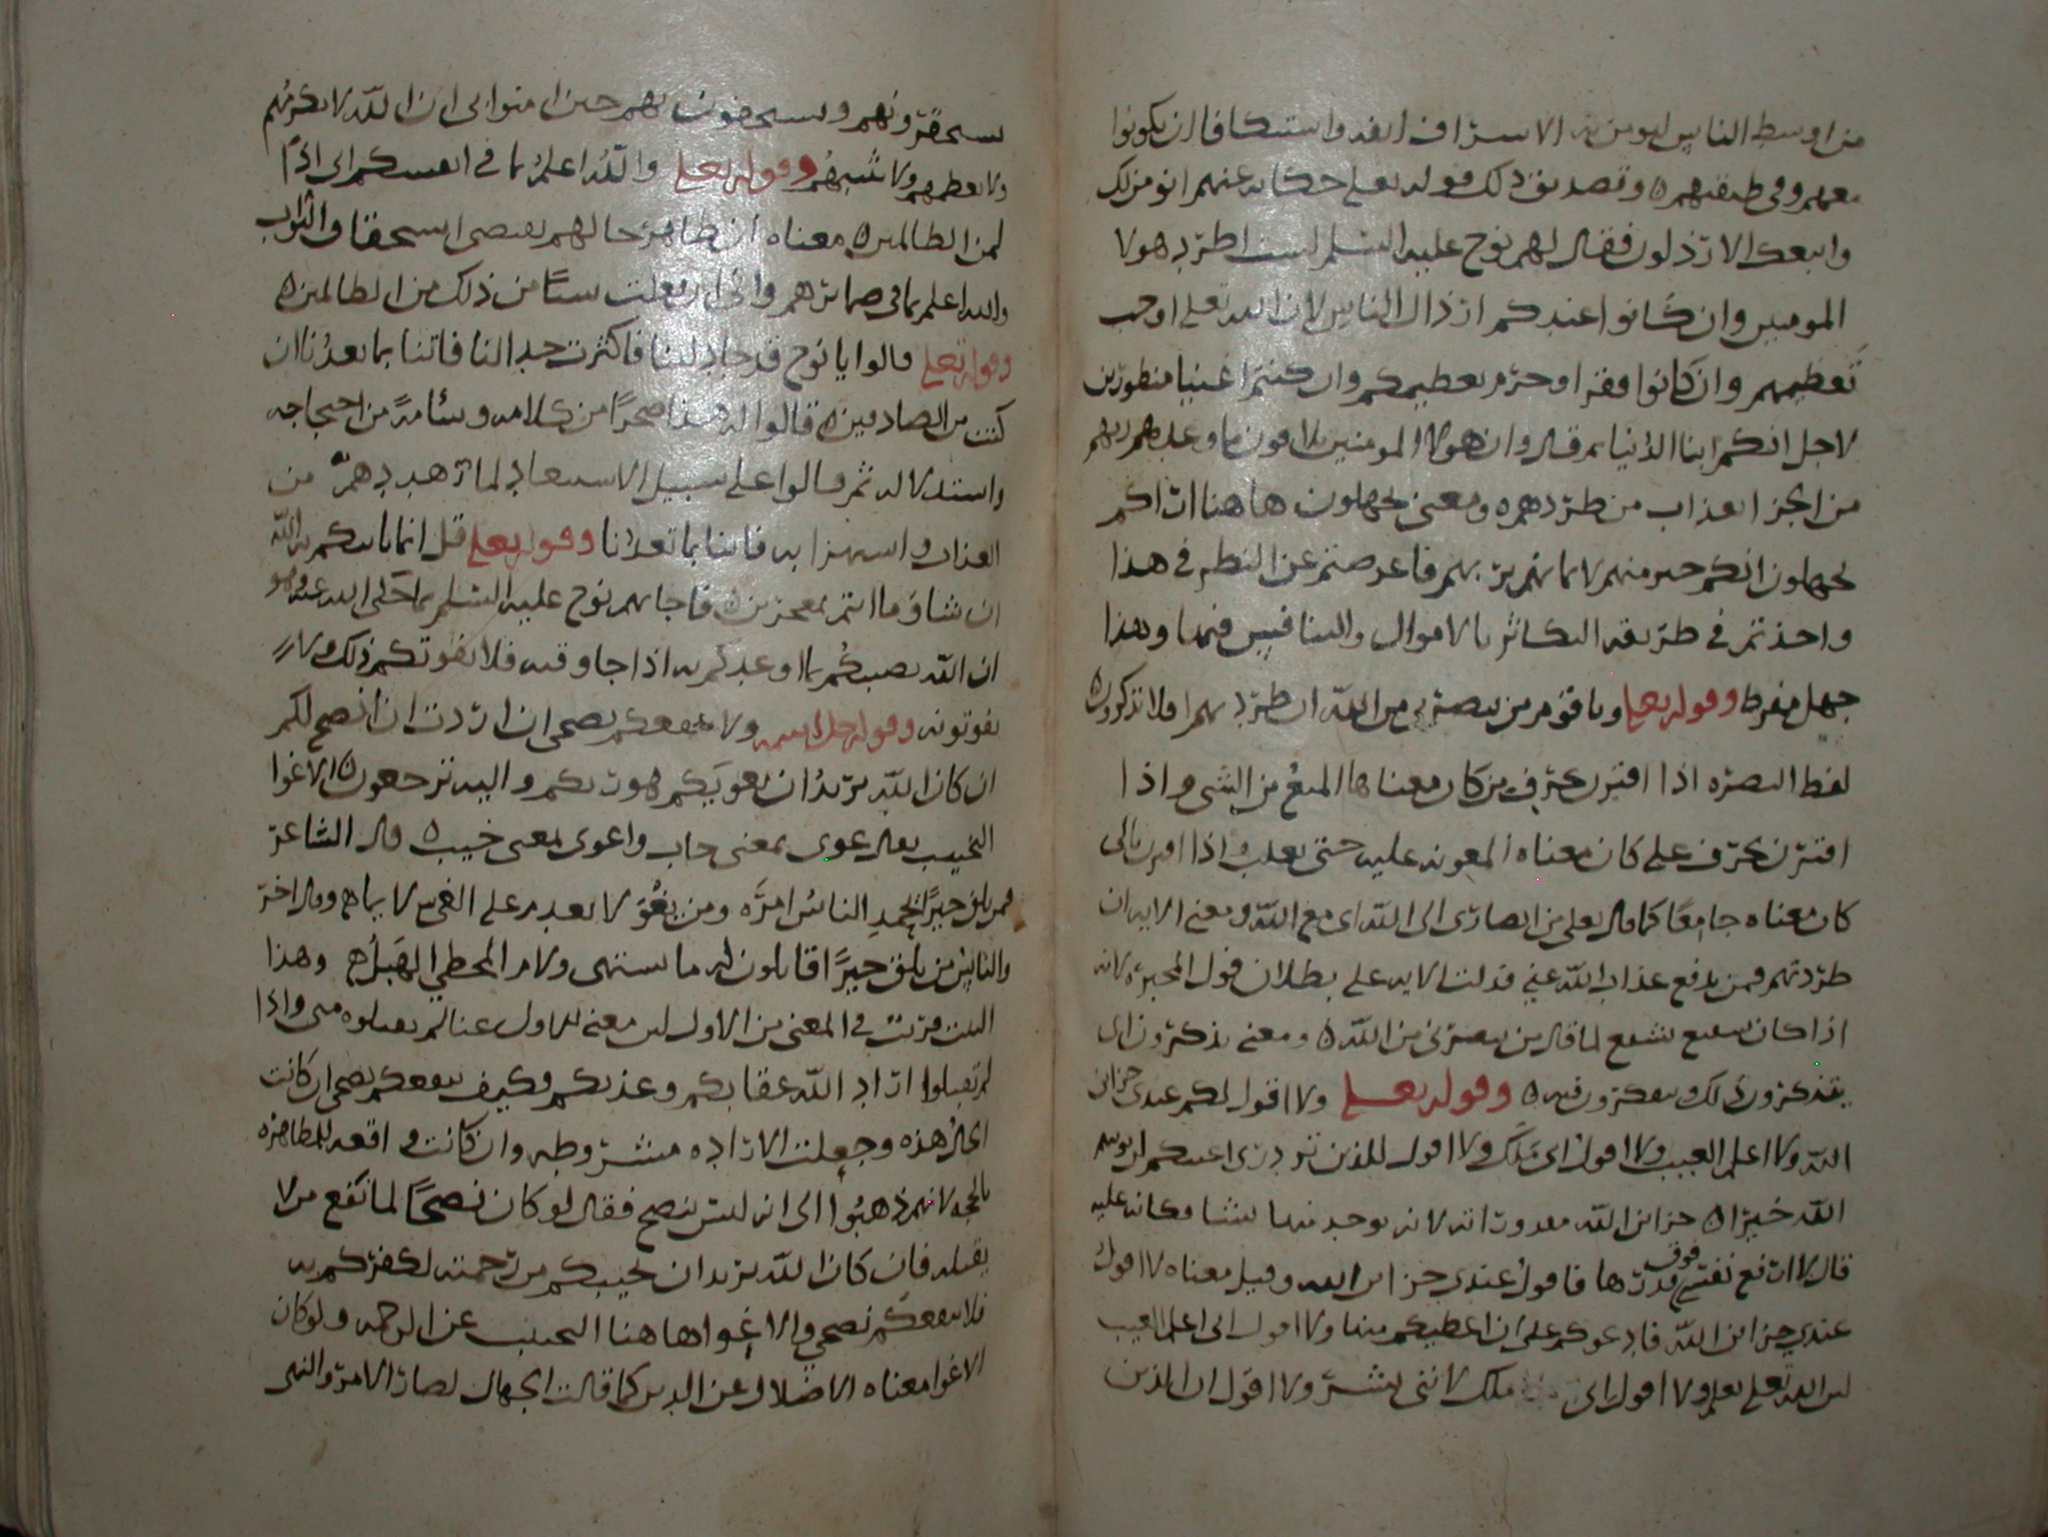 من اوسط الناس ليومن به الاسراف انفه واستنكافا ان يكونوا
معهم وفي طبقتهم ه وتصديق ذلك قوله تعلى حكاية عنهم انومن لك
واتبعك الارذلون فقال لهم نوح عليه السلم لست اطرد هولا
المومنين وان كانوا عندكم ارذال الناس لان الله تعلى اوجب
تعظيمهم وان كانوا فقرا وحرم تعظيمكم وان كنتم اغنيا منظورين
لاجل انكم ابنا الدنيا ثم قال وان هولا المومنين ملاقون ما وعدهم ربهم
من الجزا لعذاب من طردهم ه ومعنى تجهلون هاهنا اراكم
تجهلون انكم خير منهم لايمانهم بربهم فاعرضتم عن النظر في هذا
واخذتم في طريقه التكاثر بالاموال والتنافس فيها وهذا
جهل مفرط وقوله تعلى ويا قوم من ينصرني من الله ان طردتهم افلا تذكرون ه
لفظ النصره اذا اقترن بحرف من كان معناها المنع من الشى واذا
اقترن بحرف على كان معناه المعونه عليه حتى يغلب واذا اقترن بالى
كان معناه جامعا كما قال تعلى من انصارى الى الله اى مع الله ومعنى الايه ان
طردتهم فمن يدفع عذاب الله عني فدلت الايه على بطلان قول المجبره لانه
اذا كان شفيع يشفع لما قال من ينصرني من الله ه ومعنى تذكرون اى
تتذكرون ذلك وتتفكرون فيه ه وقوله تعلى ولا اقول لكم عندى خزائن
الله ولا اعلم الغيب ولا اقول انى ملك ولا اقول للذين تزدرى اعينكم لن يوتيهم
الله خيرا ه خزائن الله مقدوراته لانه يوجد منها ما يشا وكانه عليه
قال لا ارفع نفسى فوق قدرها فاقول عندى خزائن الله وقيل معناه لا اقول
عندى خزائن الله فادعوكم على ان اعطيكم منها ولا اقول انى اعلم الغيب
لان الله تعلى يعلم ولا اقول انى ملك لانني بشر ولا اقول ان الذين
تستحقرونهم وتستخفون بهم حين امنوا بى ان الله لا يكرمهم
ولا يعظمهم ولا يثيبهم وقوله تعلى والله اعلم بما في انفسكم انى اذا
لمن الظالمين ه معناه ان ظاهر حالهم يقتضى استحقاق الثواب
والله اعلم بما فى ضمائرهم وانى ان فعلت شيئا من ذلك من الظالمين ه
وقوله تعلى قالوا يا نوح قد جادلتنا فاكثرت جدالنا فاتنا بما تعدنا ان
كنت من الصادقين ه قالوا له هذا ضجرا من كلامه وسأمة من احتجاجه
واستدلاله ثم قالوا على سبيل الاستبعاد لما تهددهم من
العذاب واستهزا به فاتنا بما تعدنا وقوله تعلى قل انما ياتيكم به الله
ان شا وما انتم بمعجزين ه فاجابهم نوح عليه السلم بما حكى الله عنه وهو
ان الله يصيبكم بما وعدكم به اذا جا وقته فلا يفوتكم ذلك ولا
تفوتونه وقوله جل اسمه ولا ينفعكم نصحى ان اردت ان انصح لكم
ان كان الله يريد ان يغويكم هو ربكم واليه ترجعون ه الاغوا
التخييب يقال غوى بمعنى خاب واغوى بمعنى خيب ه قال الشاعر
فمن يلق خيرا يحمد الناس امره ومن يغو لا يعدم على الغى لايما ه وقال اخر
والناس من يلق خيرا قائلون له ما يشتهى ولام المخطى الهبل ه وهذا
البيت قريب في المعنى من الاول لان معنى الاول عنا لم يقبلوه منى واذا
لم تقبلوا اراد الله عقابكم وعذبكم وكيف ينفعكم نصحى ان كانت
الحال هذه وجعلت الاراده مشروطه وان كانت واقعه للمظاهره
بالحجه لانهم ذهبوا الى انه ليس بنصح فقال لو كان نصحا لما نفع من لا
يقبله فان كان الله يريد ان يخيبكم من رحمته لكفركم به
فلا ينفعكم نصحي والاغوا هاهنا التخييب عن الرحمه ولو كان
الاغوا معناه الاضلال عن الدين كما قالت الجهال لصار الامر والنهى